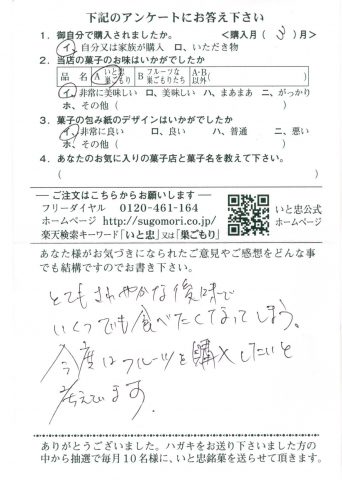 下記のアンケートにお答え下さい
1. 御自分で購入されましたか。 <購入月( 3 )月>
イ. 自分又は家族が購入 ロ、いただき物
2. 当店の菓子のお味はいかがでしたか
品 名 A いと忠巣ごもり B フルーツな巣ごもりたち A・B以外( )
イ. 非常に美味しい ロ、美味しい ハ、まあまあ ニ、がっかり
ホ、その他( )
3. 菓子の包み紙のデザインはいかがでしたか
イ. 非常に良い ロ、良い ハ、普通 ニ、悪い
ホ、その他( )
4. あなたのお気に入りの菓子店と菓子名を教えて下さい。
( )
ご注文はこちらからお願いします
フリーダイヤル 0120-461-164
ホームページ http://sugomori.co.jp/
楽天検索キーワード「いと忠」又は「巣ごもり」
いと忠公式
ホームページ
あなた様がお気づきになられたご意見やご感想をどんな事
でも結構ですのでお書き下さい。
とてもさわやかな後味で
いくつでも食べたくなってしまう。
今度はフルーツを購入したいと
考えています.
ありがとうございました。ハガキをお送り下さいました方の
中から抽選で毎月10名様に、いと忠銘菓を送らせて頂きます。